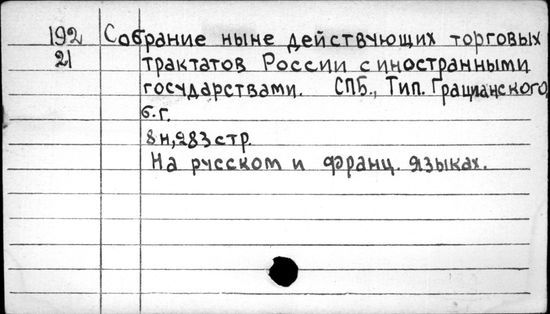 192 Собрание ныне действующих торговых
21 трактатов России с иностранными
государствами. СПБ., Тип. Грацианского,
б.г.
8н, 283 стр.
На русском и франц. языках.